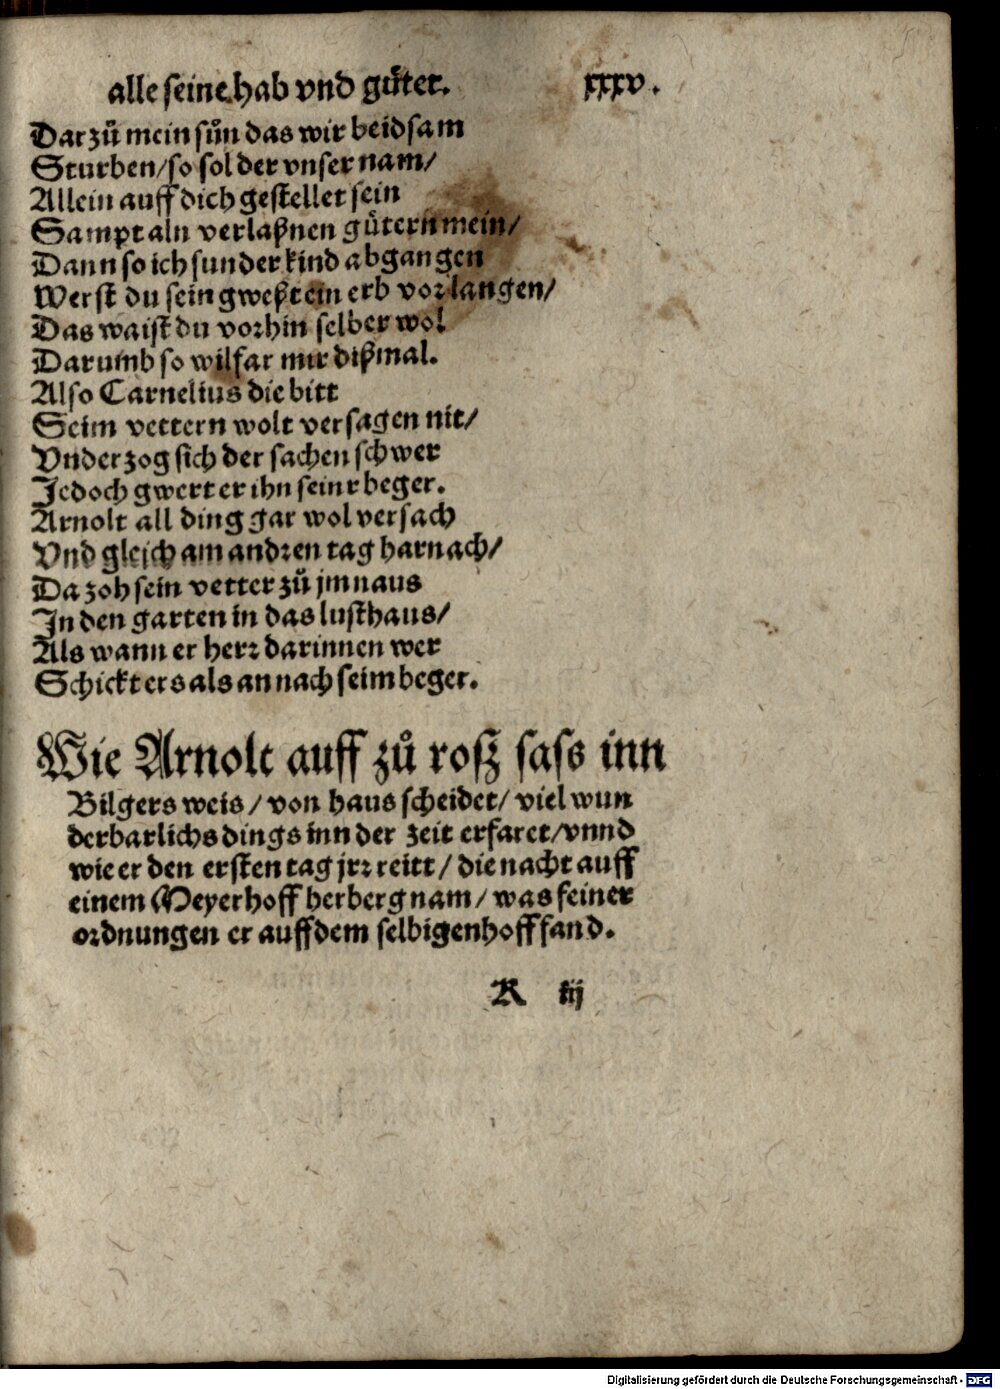 alle seine hab vnd guͤter. xxxv.
Darzuͦ mein suͤn das wir beidsam
Sturben/so sol der vnser nam/
Allein auff dich gestellet sein
Sampt aln verlaßnen guͤtern mein/
Dann so ich sunder kind abgangen
Werst du sein gweßt ein erb vorlangen/
Das waist du vorhin selber wol
Darumb so wilfar mir dißmal.
Also Carnelius die bitt
Seim vettern wolt versagen nit/
Vnderzog sich der sachen schwer
Jedoch gwert er ihn seinr beger.
Arnolt all ding gar wol versach
Vnd gleich am andren tag harnach/
Da zoh sein vetter zuͦ jm naus
In den garten in das lusthaus/
Als wann er herr darinnen wer
Schickt ers als an nach seim beger.
Wie Arnolt auff zuͦ rosz sass inn
Bilgers weis/von haus scheidet/viel wun
derbarlichs dings inn der zeit erfaret/vnnd
wie er den ersten tag jrr reitt/die nacht auff
einem Meyerhoff herberg nam/was feiner
ordnungen er auff dem selbigen hoff fand.
K iij
Digitalisierung gefördert durch die Deutsche Forschungsgemeinschaft - DFG